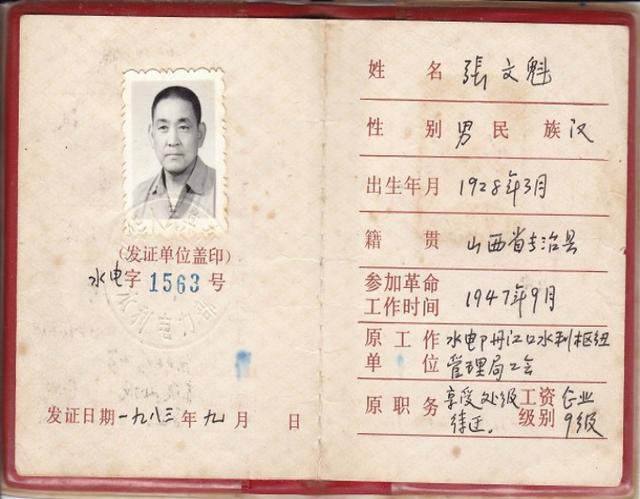 (发证单位盖印)
水电字 1563 号
水利电力部
发证日期 一九八三年 九 月 日
姓名 張文魁
性别 男 民族 汉
出生年月 1928年3月
籍贯 山西省长治县
参加革命
工作时间 1947年9月
原工作 水电部丹江口水利枢纽
单位 管理局工会
原职务 享受处级 工资 企业
待遇. 级别 9级